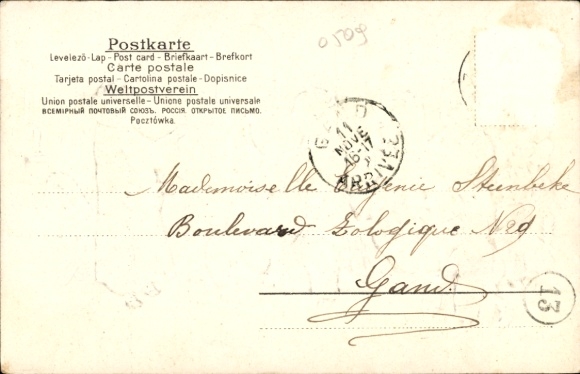 0509
Postkarte
Levelező-Lap - Post card - Briefkaart - Brefkort
Carte postale
Tarjeta postal - Cartolina postale - Dopisnice
Weltpostverein
Union postale universelle - Unione postale universale
ВСЕМІРНЫЙ ПОЧТОВЫЙ СОЮЗЪ. РОССІЯ. ОТКРЫТОЕ ПИСЬМО.
Pocztówka.
GAND
11
NOVE
16-17
ARRIVÉE
Mademoiselle Eugénie Steinbeke
Boulevard Zologique N 29
Gand.
13